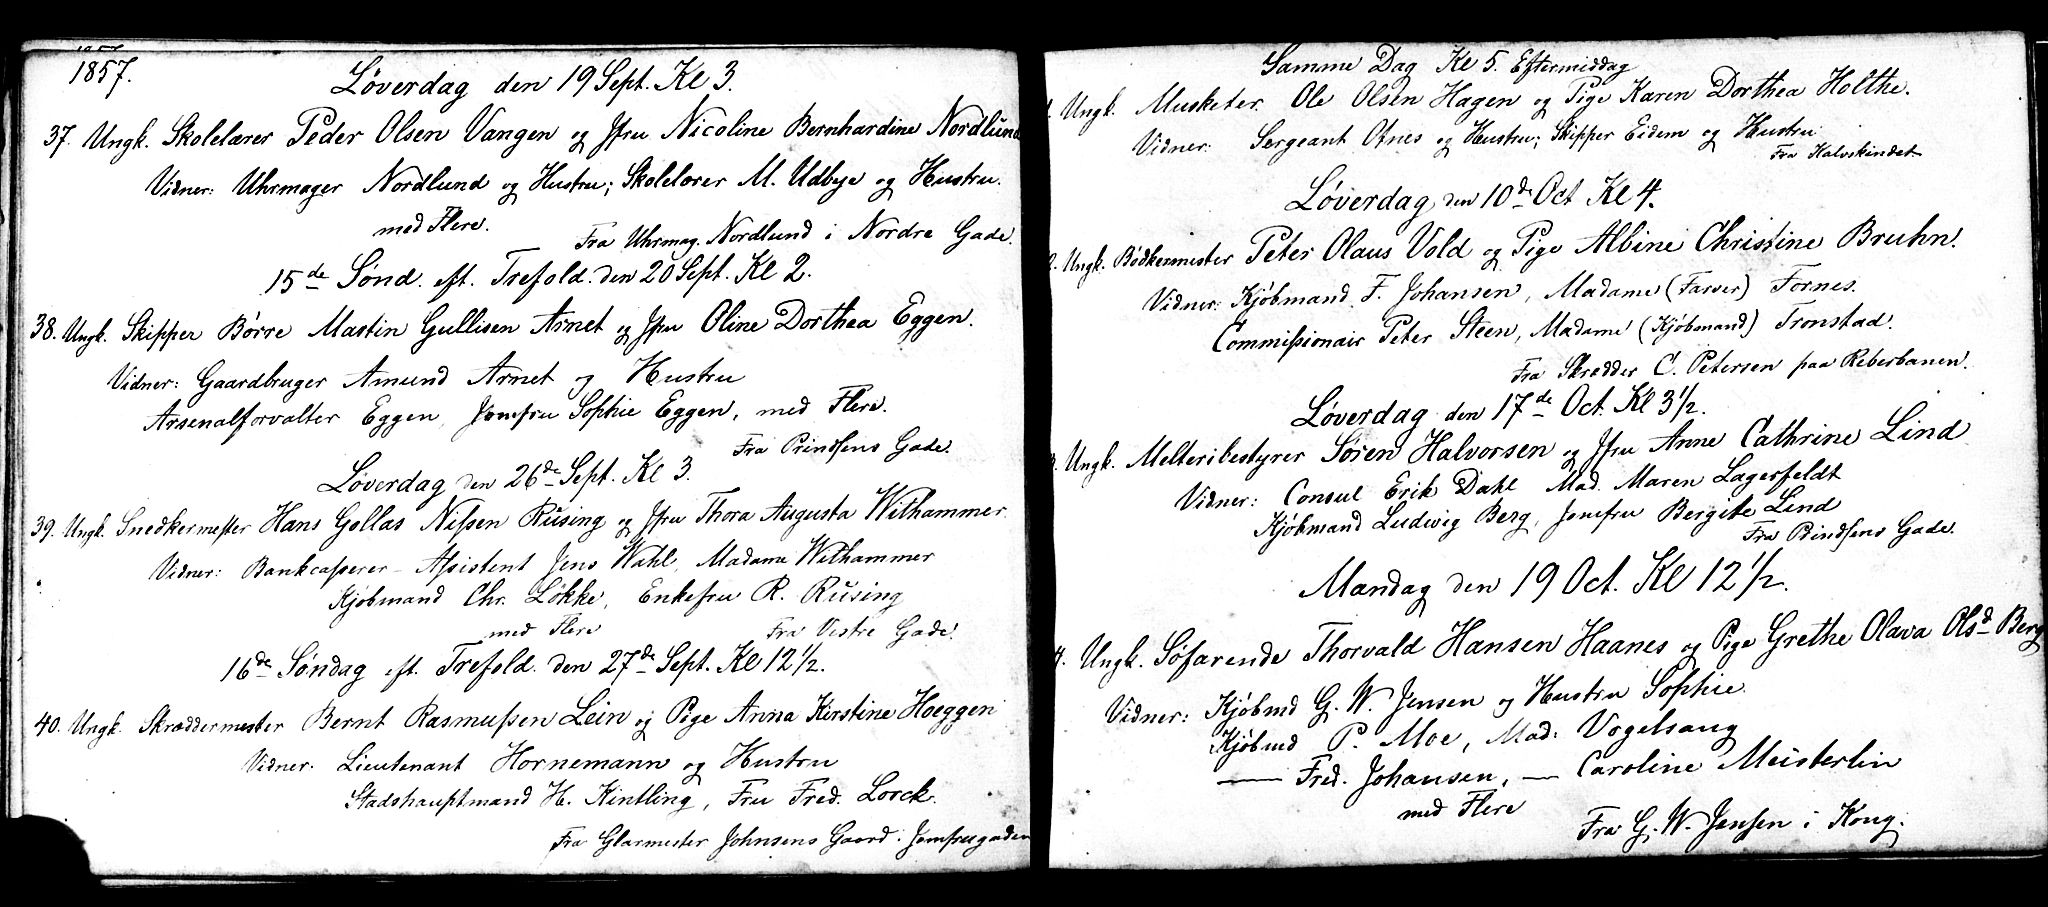 1857.
Løverdag den 19 Sept. Kl 3.
37. Ungk. Skolelærer Peder Olsen Vangen og Jfru Nicoline Bernhardine Nordlund
Vidner: Uhrmager Nordlund og Hustru; Skolelærer M. Udbye og Hustru.
med Flere.
Fra Uhrmag. Nordlund i Nordre Gade.
15de Sønd. eft. Trefold. den 20 Sept. Kl 2.
38. Ungk. Skipper Børre Martin Gullisen Arnet og Jfru Oline Dorthea Eggen.
Vidner: Gaardbruger Amund Arnet og Hustru
Arsenalforvalter Eggen, Jomfru Sophie Eggen, med Flere.
Fra Prindsens Gade.
Løverdag den 26de Sept. Kl 3.
39. Ungk. Snedkermester Hans Gellas Nissen Rüsing og Jfru Thora Augusta Withammer.
Vidner: Bankcasserer - Assistent Jens Wahl, Madame Withammer
Kjøbmand Chr. Løkke, Enkefru R. Rüsing
med Flere
Fra Vestre Gade.
16de Søndag eft. Trefold. den 27de Sept. Kl 12½.
40. Ungk. Skræddermester Bernt Rasmussen Lein og Pige Anna Kirstine Hoeggen
Vidner: Lieutenant Hornemann og Hustru
Stadshauptmand H. Kintling, Fru Fred. Lorck.
Fra Glarmester Johnsens Gaard. Jomfrugaden
Samme Dag Kl 5. Eftermiddag
Ungk. Musketer. Ole Olsen Hagen og Pige Karen Dorthea Holthe.
Vidner: Sergeant Otnes og Hustru; Skipper Eidem og Hustru.
Fra Kalvskindet
Løverdag den 10de Oct Kl 4.
2. Ungk. Bødkermester Peter Olaus Vold og Pige Albine Christine Bruhn.
Vidner: Kjøbmand F. Johansen, Madame (Farver) Fornes.
Commissionair Peter Steen, Madame (Kjøbmand) Tronstad.
Fra Skrædder C. Petersen paa Reberbanen.
Løverdag den 17de Oct. Kl 3½.
3. Ungk. Melteribestyrer Søren Halvorsen og Jfru Anne Cathrine Lind
Vidner: Consul Erik Dahl Mad. Maren Lagerfeldt
Kjøbmand Ludwig Berg, Jomfru Bergite Lind
Fra Prindsens Gade.
Mandag den 19 Oct. Kl 12½.
4. Ungk. Søfarende Thorvald Hansen Haanes og Pige Grethe Olava Olsd Berg
Vidner: Kjøbmd G. W. Jensen og Hustru Sophie.
Kjøbmd P. Moe, Mad: Vogelsang
— Fred. Johansen, — Caroline Meisterlin
med Flere
Fra G. W. Jensen i Kong.